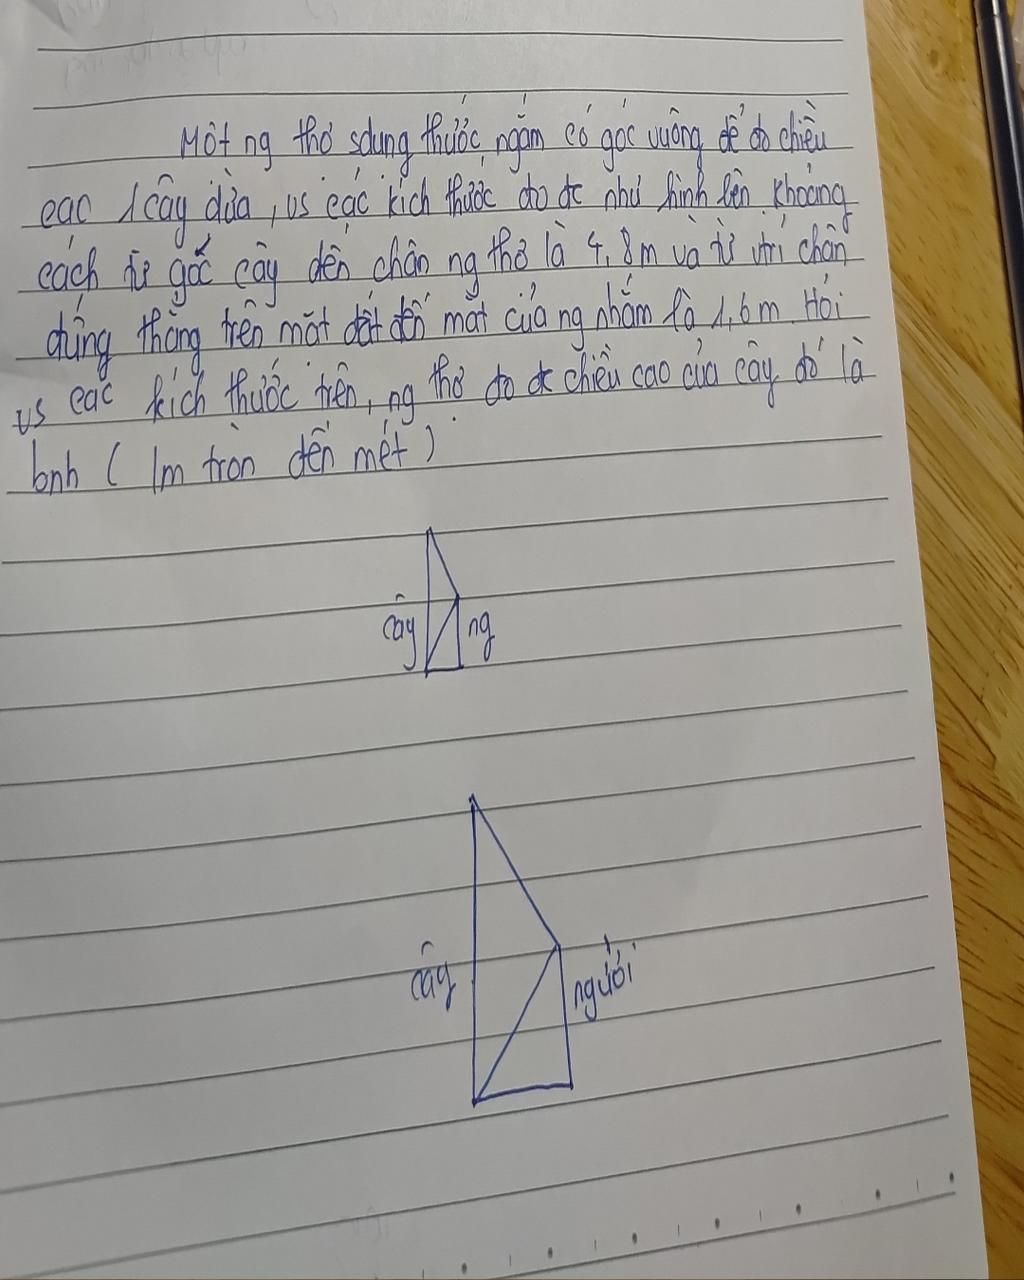 Một ng thợ sdụng thước ngắm có góc vuông để đo chiều
cao 1 cây dừa, vs các kích thước đo đc như hình bên. Khoảng
cách từ gốc cây đến chân ng thợ là 4,8m và từ vtrí chân
đứng thẳng trên mặt đất đến mắt của ng nhắm là 1,6m. Hỏi
vs các kích thước trên, ng thợ đo đc chiều cao của cây đó là
bnh ( lm tròn đến mét )
cây ng
cây người